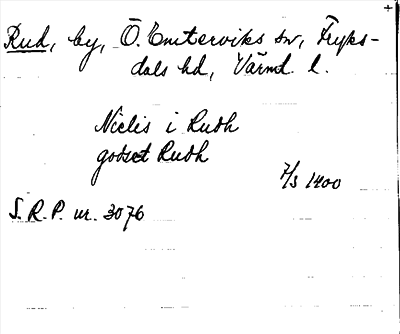 Rud, by, Ö. Emterviks sn, Fryks-
dals hd, Värml. l.
Niclis i Rudh
godset Rudh
7/3 1400
S. R. P. nr. 3076